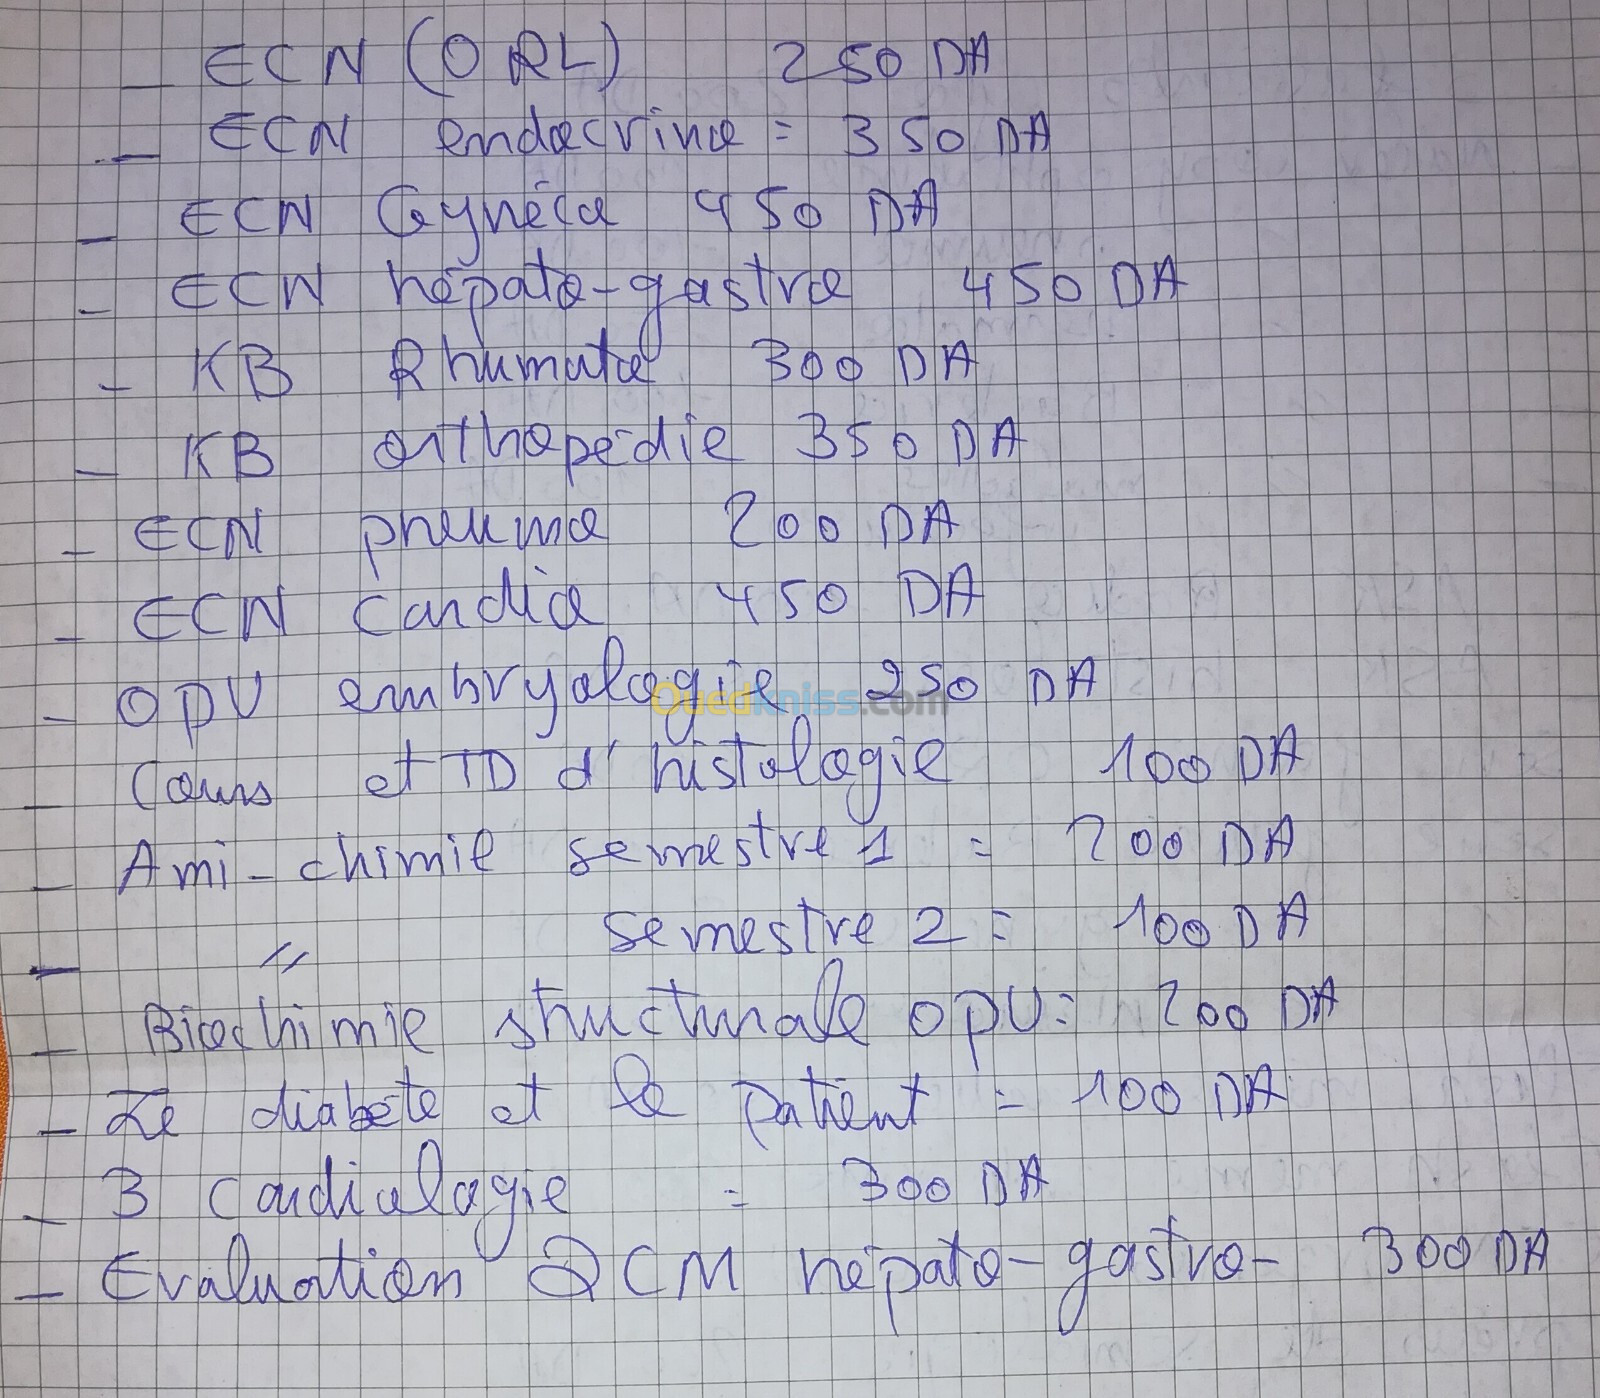 - ECN (ORL) 250 DA
- ECN endocrino = 350 DA
- ECN Gynéco 450 DA
- ECN hépato-gastro 450 DA
- KB Rhumato 300 DA
- KB orthopédie 350 DA
- ECN pneumo 200 DA
- ECN cardio 450 DA
- OPU embryologie 250 DA
Ouedkniss.com
- Cours et TD d'histologie 100 DA
- Ami-chimie semestre 1 = 200 DA
- // semestre 2 = 100 DA
- Biochimie structurale OPU = 200 DA
- Le diabète et le patient = 100 DA
- 3 cardiologie = 300 DA
- Evaluation QCM hépato-gastro- 300 DA